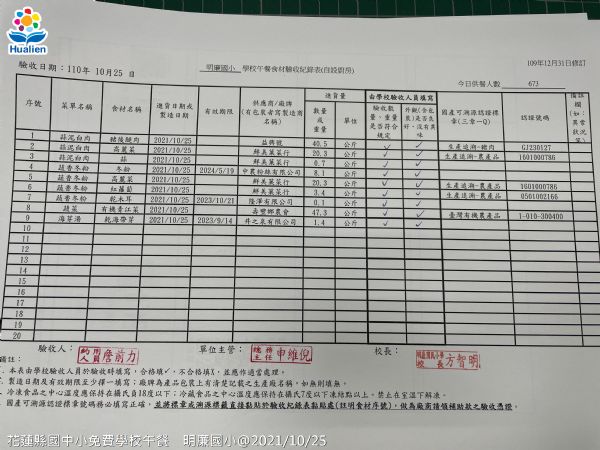 Hualien
109年12月31日修訂
驗收日期:110年 10月25日
明廉國小 學校午餐食材驗收紀錄表(自設廚房)
今日供餐人數 673
序號 菜單名稱 食材名稱 進貨日期或製造日期 有效期限 供應商/廠牌(有包裝者寫製造商名稱) 進貨量 數量或重量 單位 由學校驗收人員填寫 驗收數量,重量是否符合規定 外觀(含包裝)是否良好,沒有異味 國產可溯源認證標章(三章一Q) 認證號碼 備註欄(如:異常狀況等)
1 蒜泥白肉 豬後腿肉 2021/10/25 益興號 20.3 公斤 ✓ ✓ 生產追溯-豬肉 GJ230127
2 蒜泥白肉 高麗菜 2021/10/25 鮮美菜菜行 20.3 公斤 ✓ ✓ 生產追溯-農產品 1601000786
3 蒜泥白肉 蒜 2021/10/25 鮮美菜菜行 0.7 公斤 ✓ ✓
4 蔬香冬粉 冬粉 2021/10/25 2024/5/19 中農粉絲有限公司 8.1 公斤 ✓ ✓
5 蔬香冬粉 高麗菜 2021/10/25 鮮美菜菜行 20.3 公斤 ✓ ✓ 生產追溯-農產品 1601000786
6 蔬香冬粉 紅蘿蔔 2021/10/25 鮮美菜菜行 3.4 公斤 ✓ ✓ 生產追溯-農產品 0561002166
7 蔬香冬粉 乾木耳 2021/10/25 2023/10/21 隆洋有限公司 0.1 公斤 ✓ ✓
8 蔬菜 有機青江菜 2021/10/25 壽豐鄉農會 47.3 公斤 ✓ ✓ 臺灣有機農產品 1-010-300400
9 海芽湯 乾海帶芽 2021/10/25 2023/9/14 井之泉有限公司 1.4 公斤 ✓ ✓
10
11
12
13
14
15
16
17
18
19
20
驗收人: 約用人員 詹前力 單位主管: 總務主任 申維倪 校長: 校長 方智明
備註:
.本表由學校驗收人員於驗收時填寫,合格填✓,不合格填X,並應作適當處理。
.製造日期及有效期限至少擇一填寫;廠牌為產品包裝上有清楚記載之生產廠名稱,如無則填無。
.冷凍食品之中心溫度應保持在攝氏負18度以下;冷藏食品之中心溫度應保持在攝氏7度以下凍結點以上,禁止在室溫下解凍。
.國產可溯源標章號碼務必填寫正確,並將標章或溯源標籤直接黏貼於驗收紀錄表黏貼處(註明食材序號),做為廠商請領補助款之驗收憑證。
花蓮縣國中小免費學校午餐 明廉國小@2021/10/25